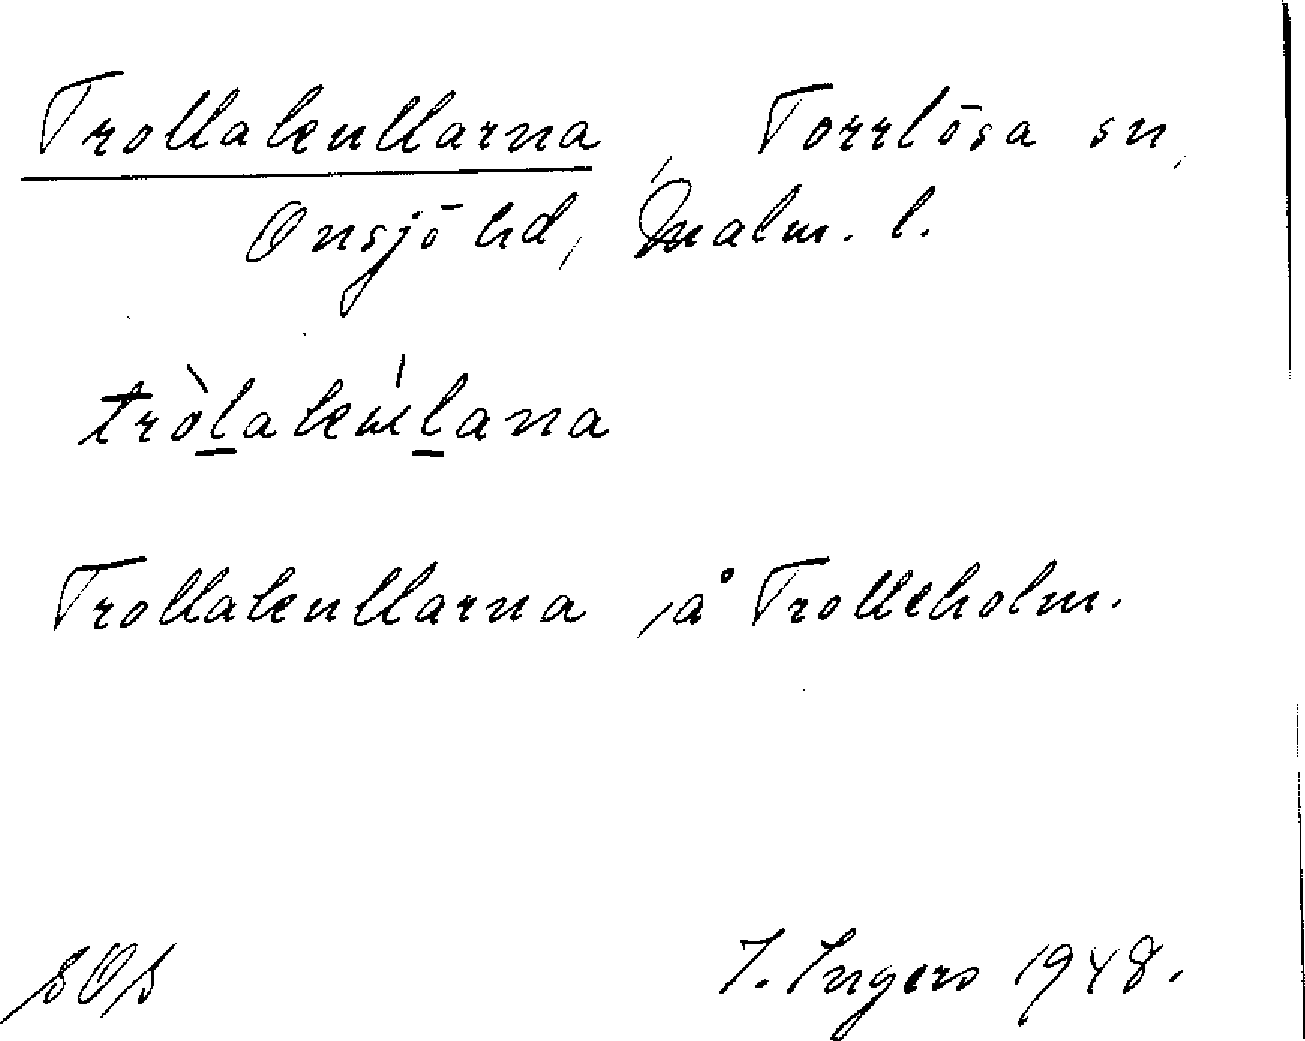 Trollakullarna, Torrlösa sn,
Onsjö hd, Malm. l.
tròl̲akúl̲ana
Trollakullarna, å Trolleholm.
SOS I. Ingers 1948.